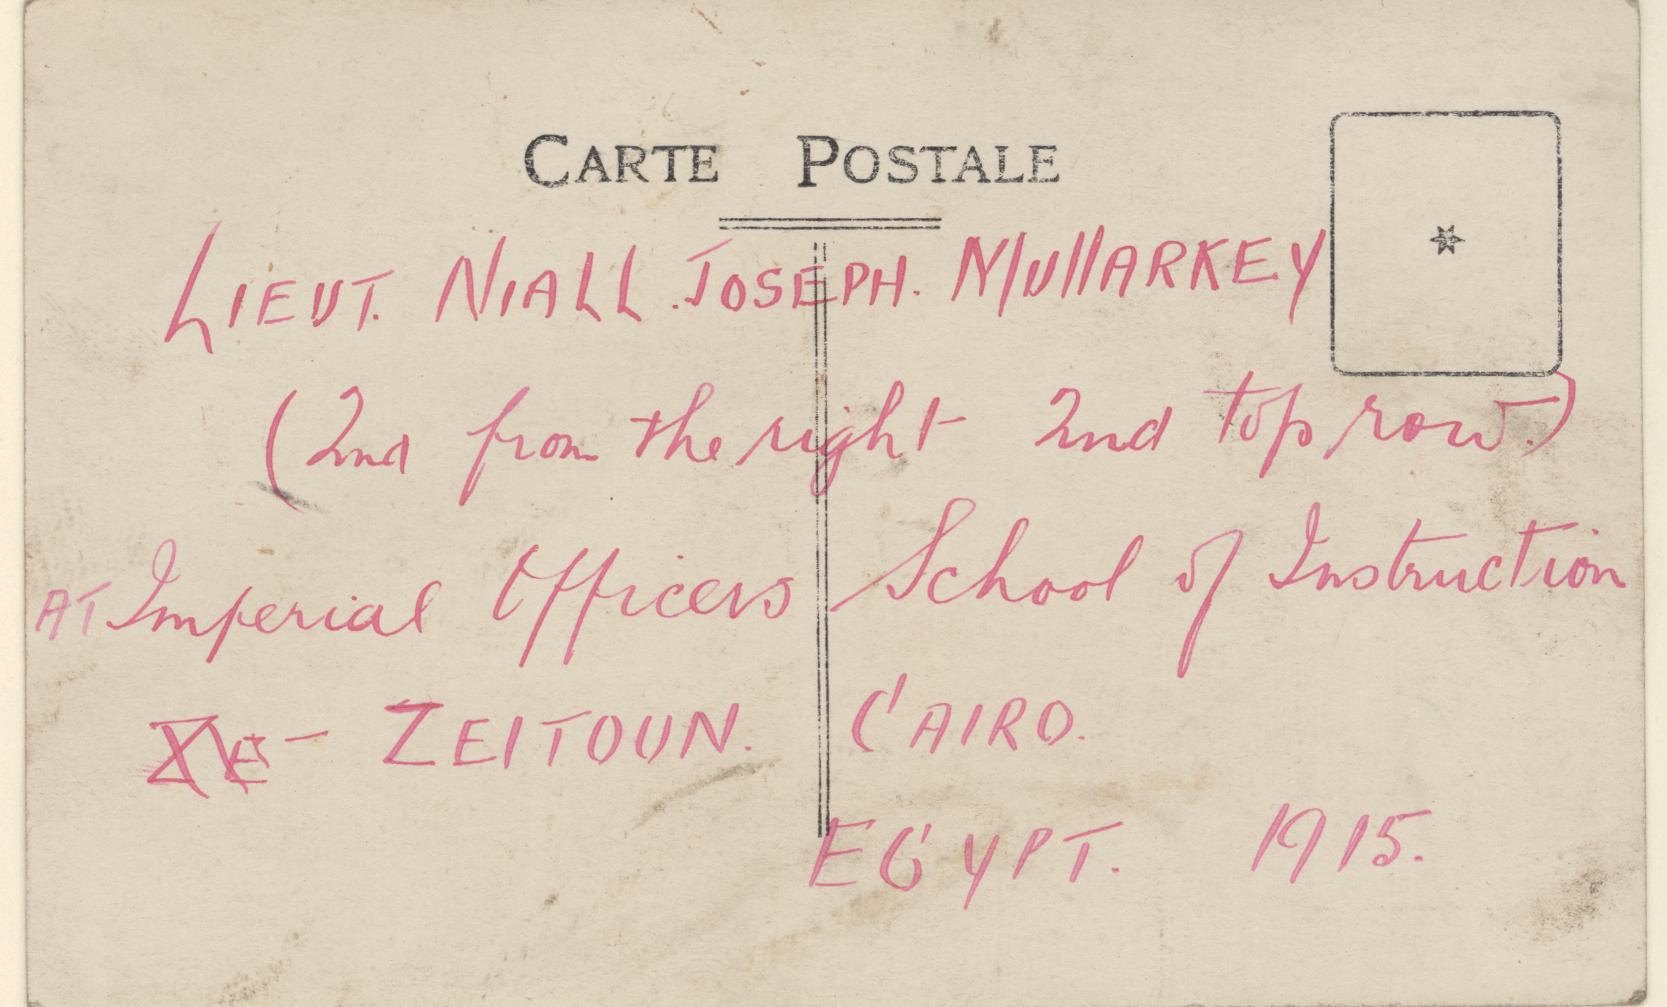 CARTE POSTALE
LIEUT. NIALL JOSEPH. MULLARKEY
(2nd from the right 2nd top row.)
AT Imperial Officers School of Instruction
— ZEITOUN. CAIRO.
EGYPT. 1915.